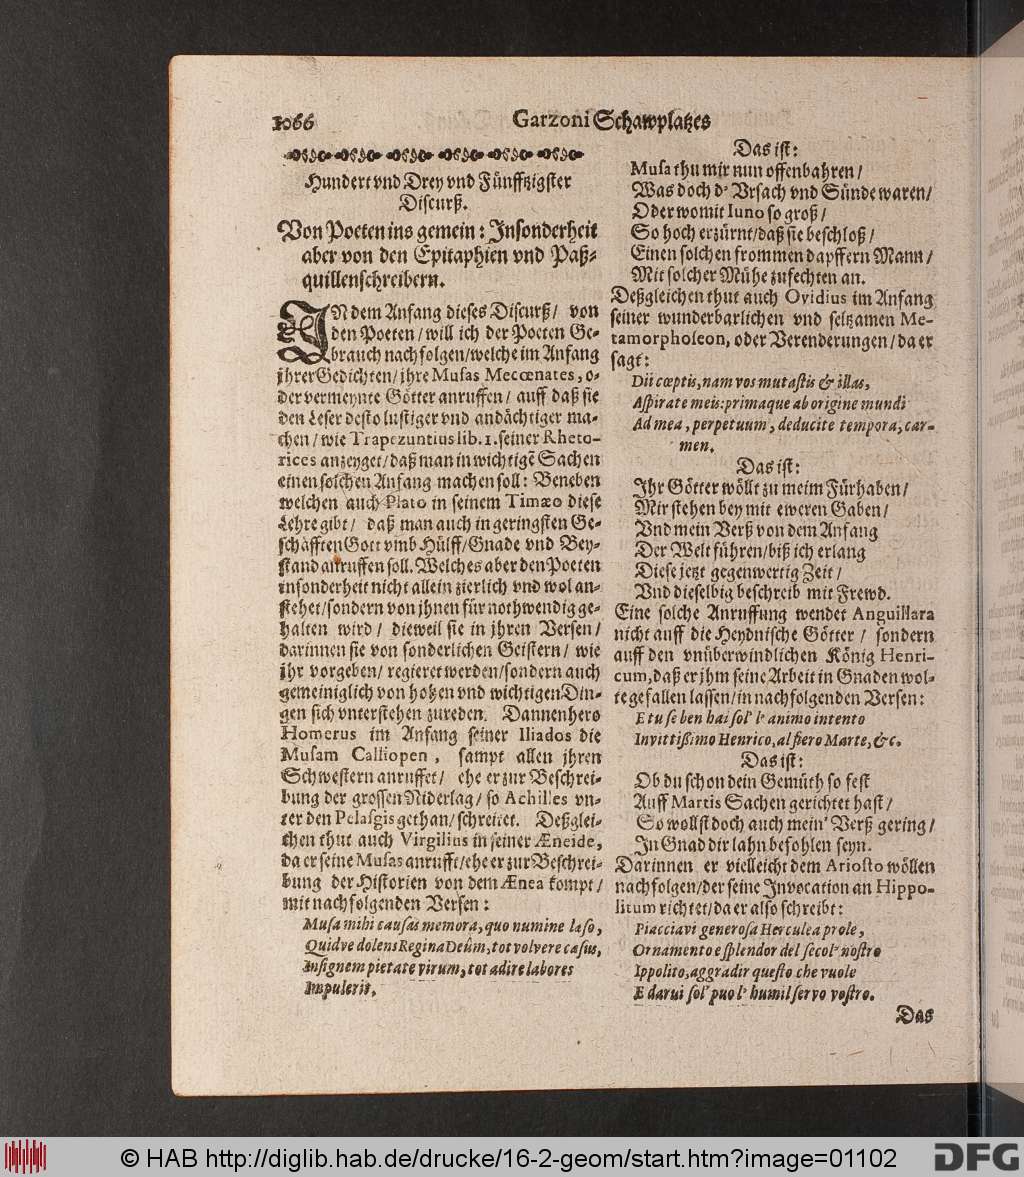 1066
Garzoni Schawplatzes
Hundert vnd Drey vnd Fünfftzigster
Discurß.
Von Poeten ins gemein: Insonderheit
aber von den Epitaphien vnd Paß-
quillenschreibern.
IN dem Anfang dieses Discurß/ von
den Poeten/ will ich der Poeten Ge-
brauch nachfolgen/ welche im Anfang
jhrer Gedichten/ jhre Musas Mecœnates, o-
der vermeynte Götter anruffen/ auff daß sie
den Leser desto lustiger vnd andächtiger ma-
chen/ wie Trapezuntius lib. 1. seiner Rheto-
rices anzeyget/ daß man in wichtigẽ Sachen
einen solchen Anfang machen soll: Beneben
welchen auch Plato in seinem Timæo diese
Lehre gibt/ daß man auch in geringsten Ge-
schäfften Gott vmb Hülff/ Gnade vnd Bey-
stand anruffen soll. Welches aber den Poeten
insonderheit nicht allein zierlich vnd wol an-
stehet/ sondern von jhnen für nothwendig ge-
halten wird/ dieweil sie in jhren Versen/
darinnen sie von sonderlichen Geistern/ wie
jhr vorgeben/ regieret werden/ sondern auch
gemeiniglich von hohen vnd wichtigen Din-
gen sich vnterstehen zu reden. Dannenhero
Homerus im Anfang seiner Iliados die
Musam Calliopen, sampt allen jhren
Schwestern anruffet/ ehe er zur Beschrei-
bung der grossen Niderlag/ so Achilles vn-
ter den Pelasgis gethan/ schreitet. Deßglei-
chen thut auch Virgilius in seiner Æneide,
da er seine Musas anrufft/ ehe er zur Beschrei-
bung der Historien von dem Ænea kompt/
mit nachfolgenden Versen:
Musa mihi causas memora, quo numine læso,
Quidve dolens Regina Deûm, tot volvere casus,
Insignem pietate virum, tot adire labores
Impulerit.
Das ist:
Musa thu mir nun offenbahren/
Was doch d' Vrsach vnd Sünde waren/
Oder womit Iuno so groß/
So hoch erzürnt/ daß sie beschloß/
Einen solchen frommen dapffern Mann/
Mit solcher Mühe zufechten an.
Deßgleichen thut auch Ovidius im Anfang
seiner wunderbarlichen vnd seltzamen Me-
tamorphoseon, oder Verenderungen/ da er
sagt:
Dii cœptis, nam vos mutastis & illas,
Aspirate meis: primaque ab origine mundi
Ad mea, perpetuum, deducite tempora, car-
men.
Das ist:
Ihr Götter wöllt zu meim Fürhaben/
Mir stehen bey mit eweren Gaben/
Vnd mein Verß von dem Anfang
Der Welt führen/ biß ich erlang
Diese jetzt gegenwertig Zeit/
Vnd dieselbig beschreib mit Frewd.
Eine solche Anruffung wendet Anguillara
nicht auff die Heydnische Götter/ sondern
auff den vnüberwindlichen König Henri-
cum, daß er jhm seine Arbeit in Gnaden wol-
te gefallen lassen/ in nachfolgenden Versen:
E tu se ben hai sol' l' animo intento
Invittißimo Henrico, al fiero Marte, &c.
Das ist:
Ob du schon dein Gemüth so fest
Auff Martis Sachen gerichtet hast/
So wollst doch auch mein' Verß gering/
In Gnad dir lahn befohlen seyn.
Darinnen er vielleicht dem Ariosto wöllen
nachfolgen/ der seine Invocation an Hippo-
litum richtet/ da er also schreibt:
Piacciavi generosa Herculea prole,
Ornamento e splendor del secol' nostro
Ippolito, aggradir questo che vuole
E darui sol' puo l' humil servo vostro.
Das
© HAB http://diglib.hab.de/drucke/16-2-geom/start.htm?image=01102
DFG